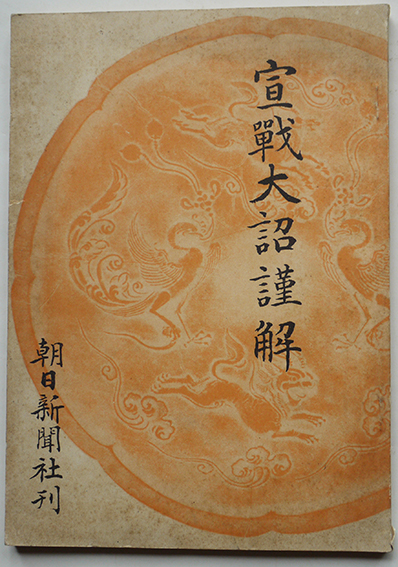 宣戰大詔謹解
朝日新聞社刊